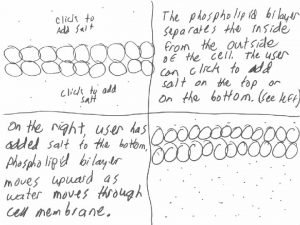 Click to
Add salt
Click to add
salt
The phospholipid bilayer
separates the inside
from the outside
of the cell. The user
can click to add
salt on the top or
on the bottom. (see left)
On the right, user has
added salt to the bottom.
Phospholipid bilayer
moves upward as
water moves through
cell membrane.